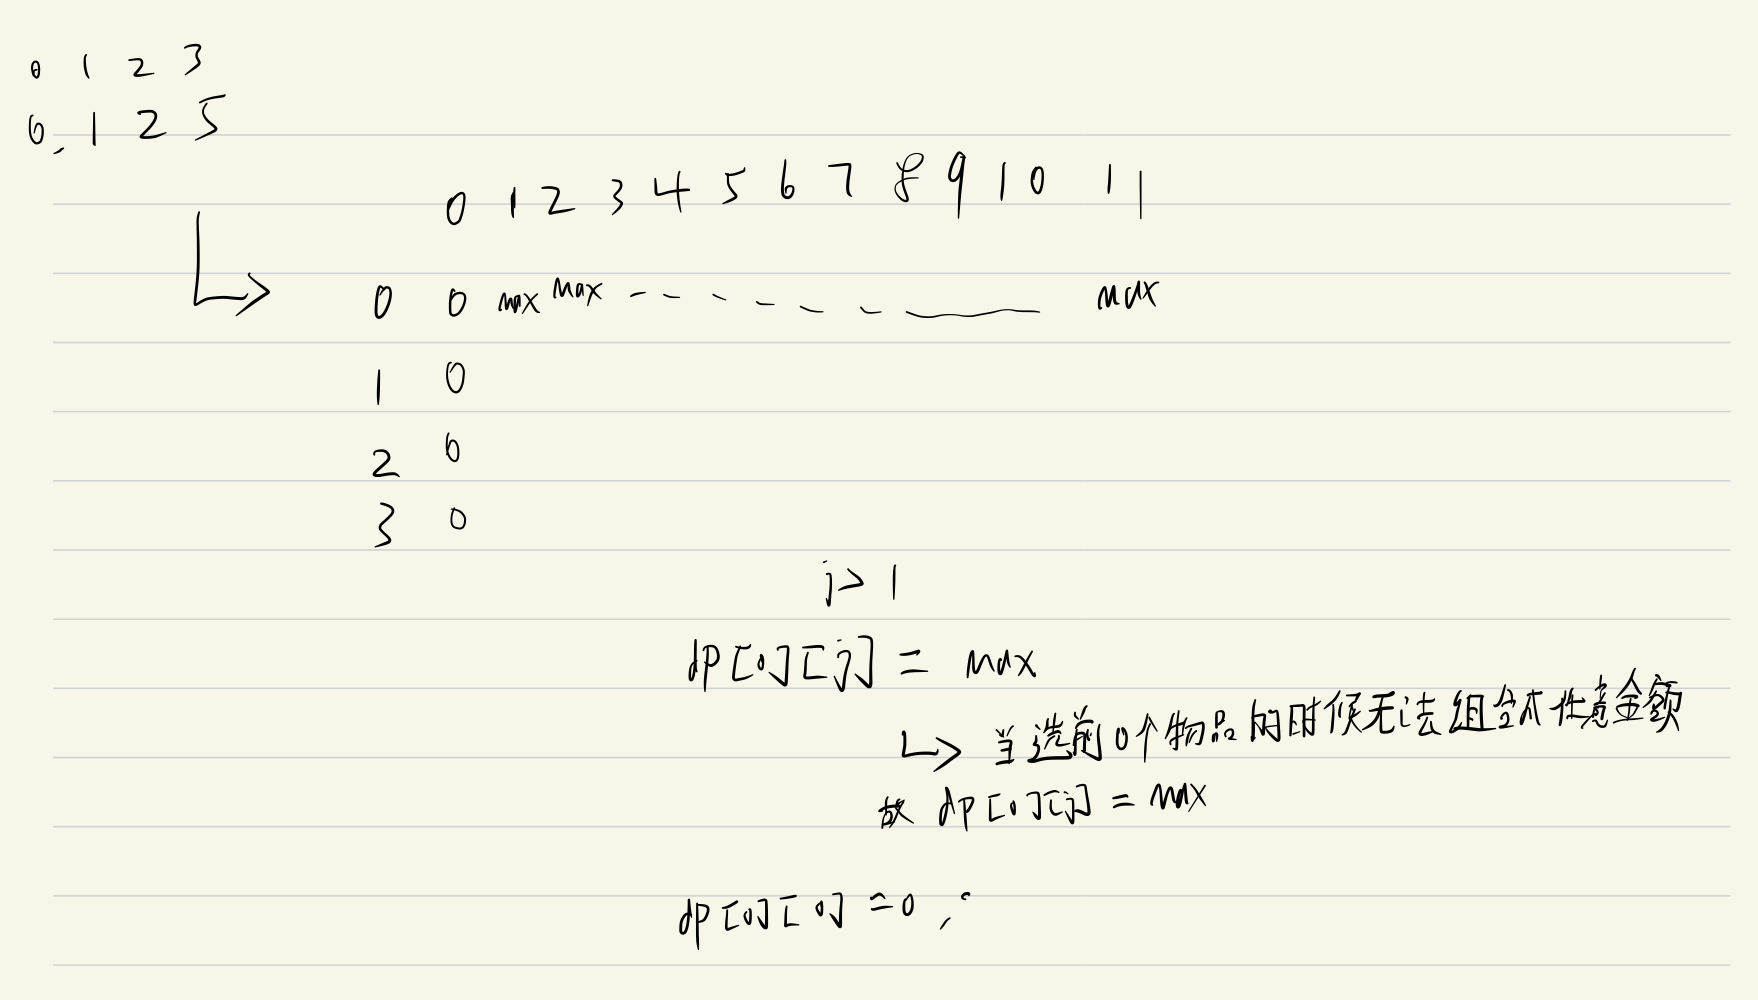 0 1 2 3
0, 1 2 5
0 1 2 3 4 5 6 7 8 9 10 11
0 0 max max - - - - - - max
1 0
2 0
3 0
j > 1
dp[0][j] = max
↳ 当选前0个物品的时候无法组合成任意金额
故 dp[0][j] = max
dp[0][0] = 0;